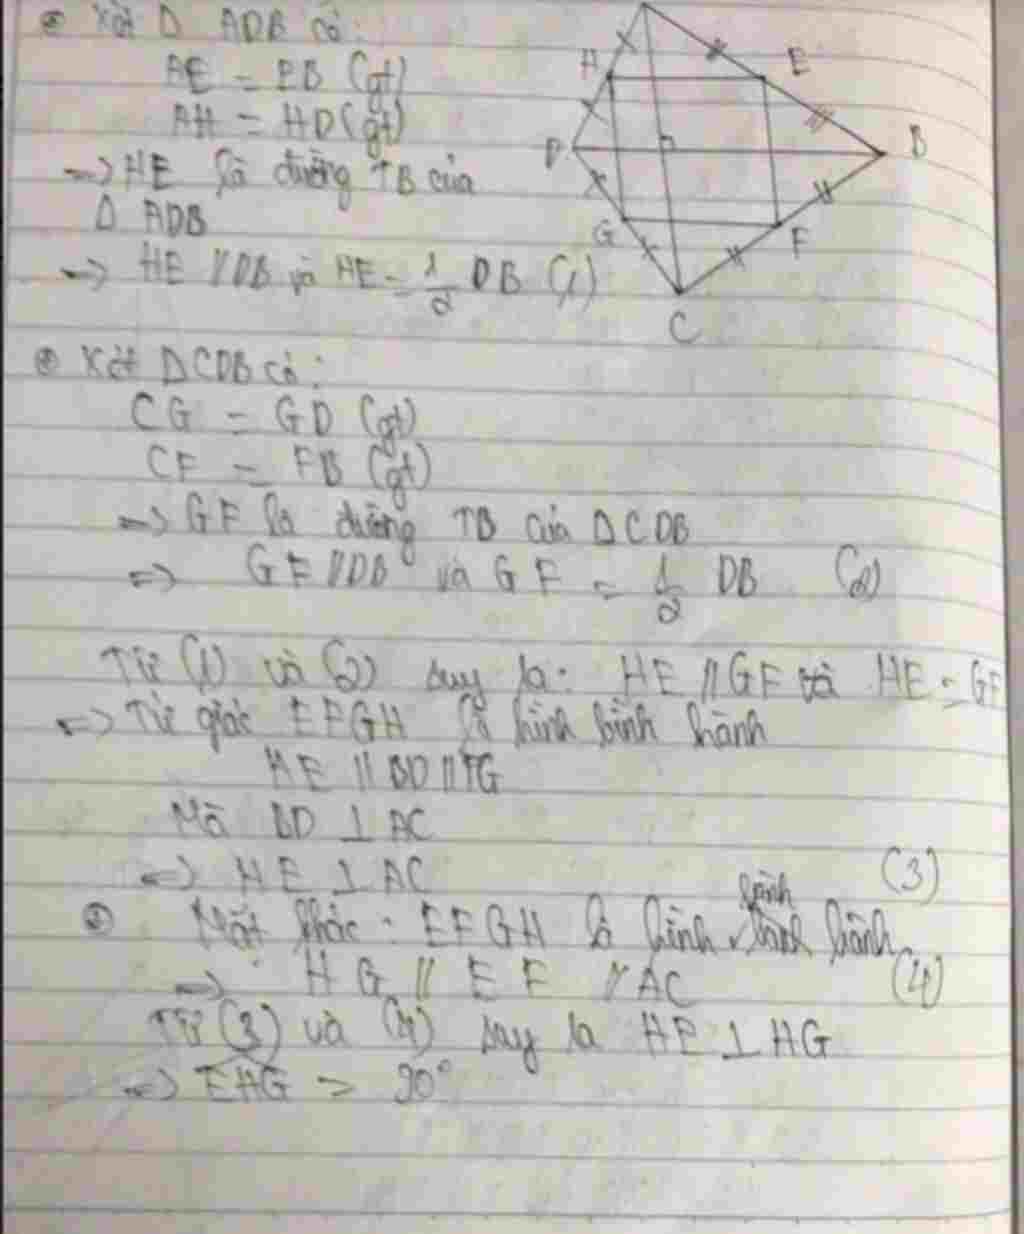 Xét Δ ADB có:
AE = EB (gt)
AH = HD (gt)
=> HE là đường TB của
Δ ADB
=> HE // DB và HE = 1/2 DB (1)
H
E
D
B
G
F
C
Xét ΔCDB có:
CG = GD (gt)
CF = FB (gt)
=> GF là đường TB của ΔCDB
=> GF // DB và GF = 1/2 DB (2)
Từ (1) và (2) suy la: HE // GF và HE = GF
=> Tứ giác EFGH là hình bình hành
HE // BD // FG
Mà BD ⊥ AC
=> HE ⊥ AC (3)
Mặt khác: EFGH là hình bình hành
=> HG // EF // AC (4)
Từ (3) và (4) suy la HE ⊥ HG
=> EHG = 90°